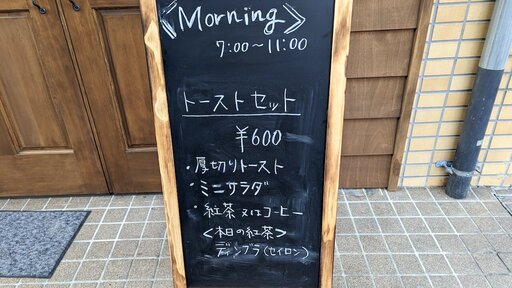 《Morning》
7:00～11:00
トーストセット
¥600
・厚切りトースト
・ミニサラダ
・紅茶又はコーヒー
<本日の紅茶>
ディンブラ(セイロン)